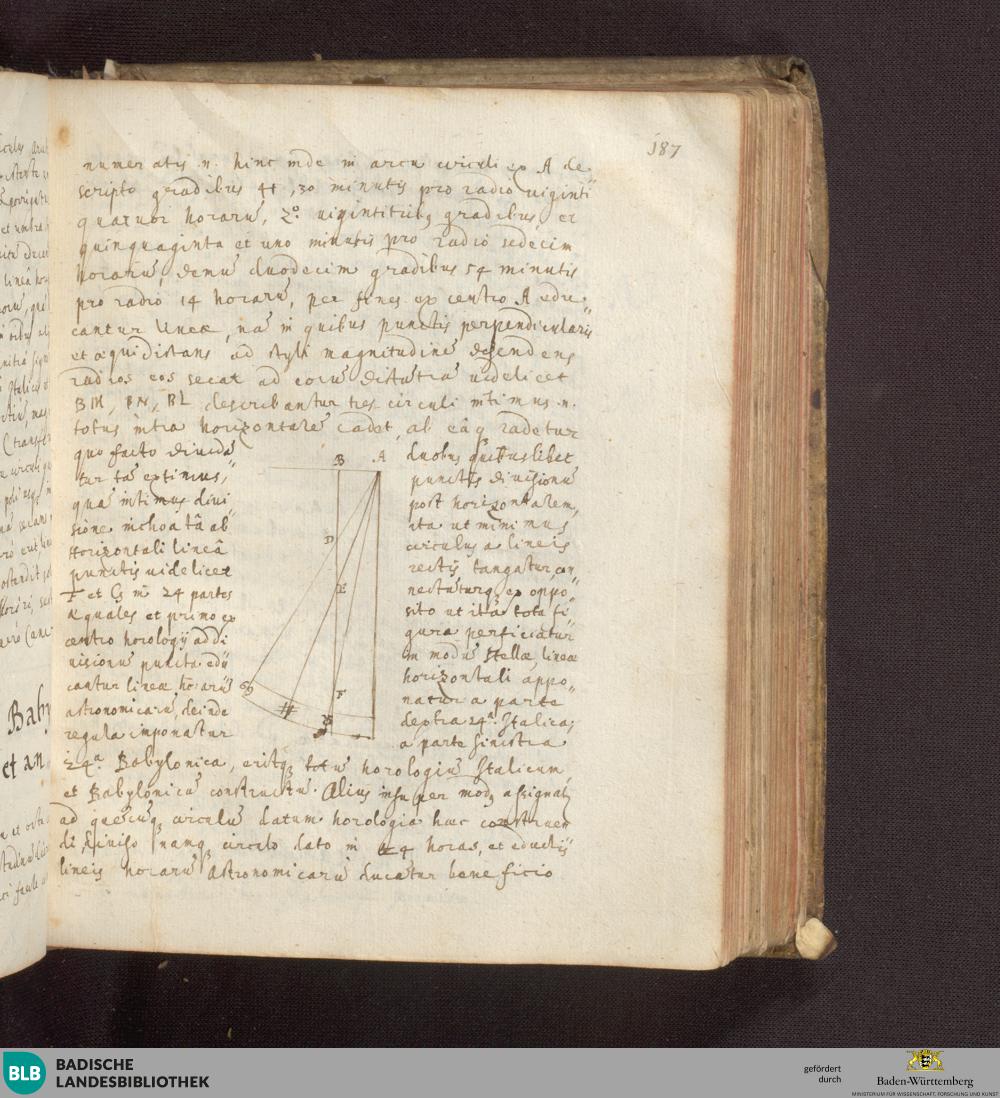 187
numeratis .n. hinc inde in arcu circuli ex A de„
scripto gradibus 41 ,30 minutis pro radio uiginti
quatuor horarũ, 2.º uigintitribꝫ gradibus, et
quinquaginta et uno minutis pro radio sedecim
horarũ, demũ duodecim gradibus 54 minutis
pro radio 14 horarũ, per fines ex centro A edu„
cantur lineæ, nã in quibus punctis perpendicularis
et æquidistans ad styli magnitudinẽ descendens
radios eos secat ad eorũ distãtiã uidelicet
BM, BN, BL describantur tres circuli intimus .n.
totus intra horizontalẽ cadet, ab eâq radetur
quo facto diuida„
tur tã extimus,
quã intimus diui„
sione inchoatâ ab
Horizontali lineâ
punctis uidelicet
F et G in 24 partes
æquales et primo ex
centro horologij addi
uisionũ puncta edũ
cantur lineæ horarũ
astronomicarũ, deinde
regula imponatur
duobus quibuslibet
punctis diuisionũ
post horizontalem,
ita ut minimus
circulus a lineis
rectis tangatur, con
nectãturq ex oppo„
sito ut ita tota fi„
gura perficiatur
in modũ stellæ, lineæ
horizontali appo„
natur a parte
dextra 24ᵃ. Italica,
a parte sinistra
B A
D
E
F
24.ᵃ Babylonica, eritqꝫ totũ horologiũ Italicum,
et Babylonicũ constructũ. Alius insuper modꝰ assignat
ad quẽcũqꝫ circulũ datum horologia hæc construen
di, diuiso namqꝫ circulo dato in 24 horas, et eductis
lineis horarũ Astronomicarũ ducatur beneficio
Baby
et an
BLB BADISCHE
LANDESBIBLIOTHEK
gefördert
durch
Baden-Württemberg
MINISTERIUM FÜR WISSENSCHAFT, FORSCHUNG UND KUNST